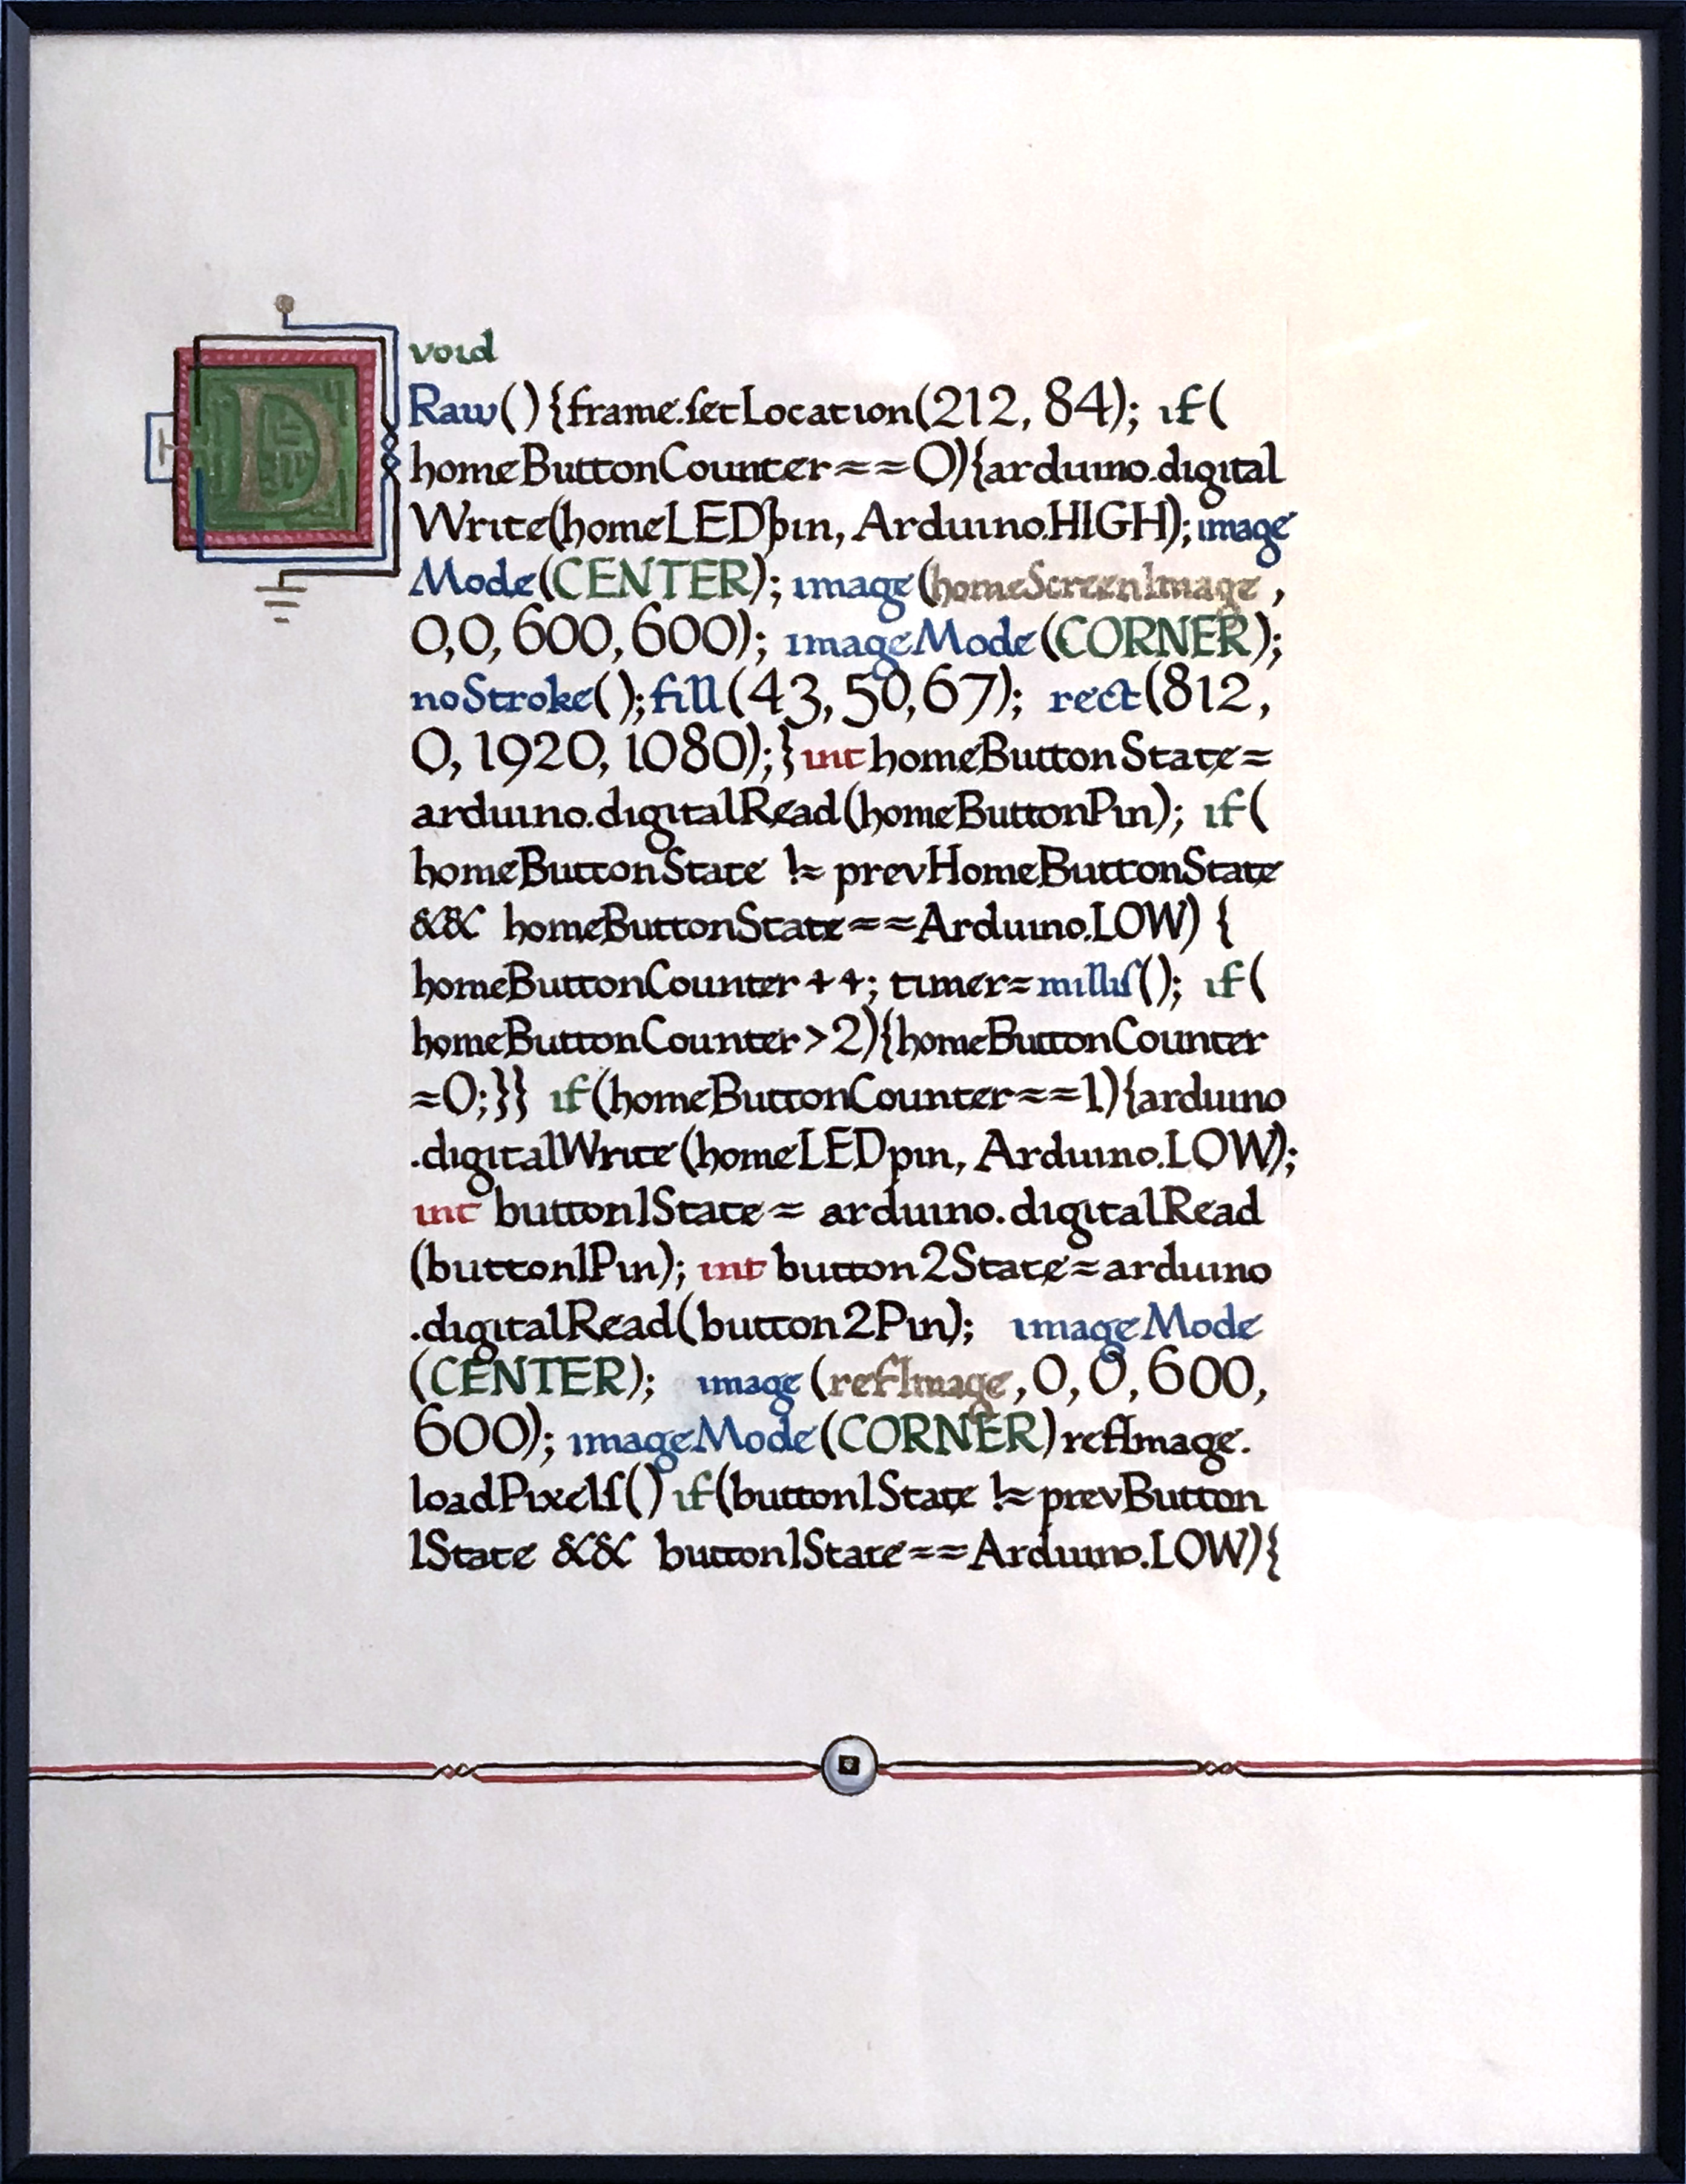 void
D
Raw(){frame.ſetLocation(212, 84); if(
homeButtonCounter==0){arduino.digital
Write(homeLEDpin, Arduino.HIGH); image
Mode(CENTER); image(homeScreenImage,
0,0, 600, 600); imageMode(CORNER);
noStroke(); fill(43, 50, 67); rect(812,
0, 1920, 1080);} int homeButtonState=
arduino.digitalRead(homeButtonPin); if(
homeButtonState != prevHomeButtonState
&& homeButtonState==Arduino.LOW) {
homeButtonCounter++; timer=milliſ(); if(
homeButtonCounter>2){homeButtonCounter
=0;}} if(homeButtonCounter==1){arduino
.digitalWrite(homeLEDpin, Arduino.LOW);
int button1State= arduino.digitalRead
(button1Pin); int button2State=arduino
.digitalRead(button2Pin); imageMode
(CENTER); image(refImage,0,0,600,
600); imageMode(CORNER)refImage.
loadPixelſ() if(button1State != prevButton
1State && button1State==Arduino.LOW){